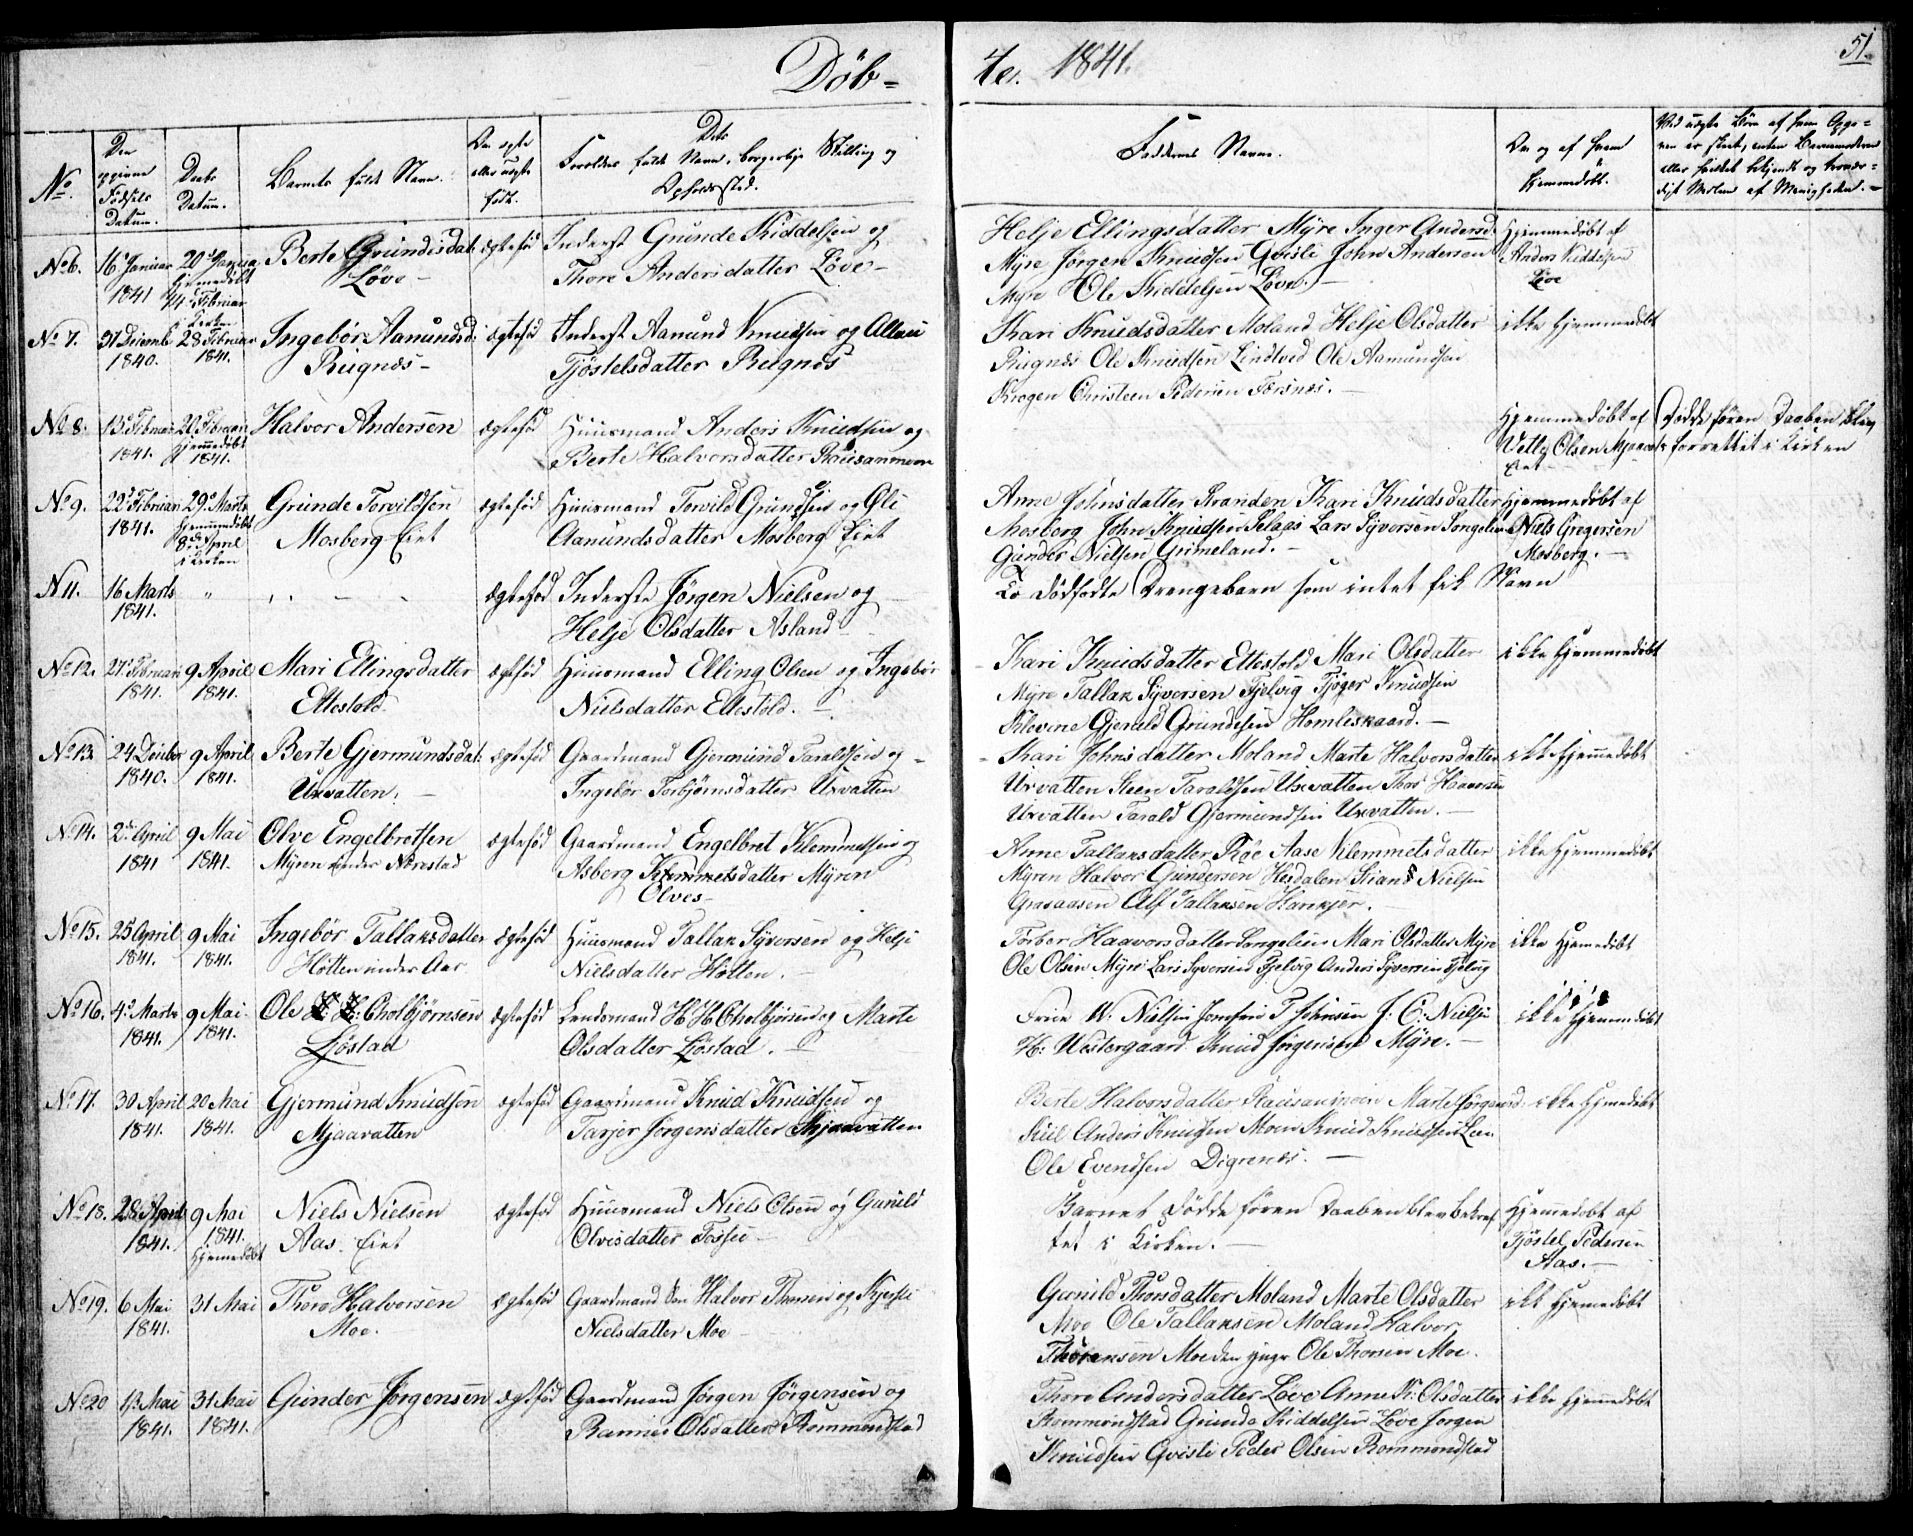 Døb-
te. 1841.
51.
No.
Den
Fødsels
Datum.
Daabs
Datum.
Barnets fulde Navn.
Om ægte
eller uægte
født.
Dets
Forældres fulde Navn, borgerlige Stilling og
Opholdssted.
Faddernes Navne.
Om og af hvem
hjemmedøbt.
No 6.
16 Januar
1841
20 Janua
hjemmedøbt
14 Februar
i Kirken
Berte Grundesdat:
Løve
ægtefød
Inderst Grunde Kiddelsen og
Thore Andersdatter Løve
Helje Ellingsdatter Myre Inger Andersd:
Myre Jørgen Knudsen Qvisle John Andersen
Myre Ole Kiddelsen Løve.
Hjemmedøbt af
Anders Kiddelsen
Løve
No 7.
31 Decemb
1840.
28 Februar
1841.
Ingebør Aamundsd:
Rugnes
ægtefød
Inderst Aamund Knudsen og
Tjøstelsdatter Rugnes
Kari Knudsdatter Moland Helje Olsdatter
Rugnes Ole Knudsen Lindtved Ole Aamundsen
Krogen Christen Pedersen Torsnes.
ikke hjemmedøbt
No 8.
13 Februar
1841.
20 Februar
hjemmedøbt
1841.
Halvor Andersen
ægtefød
Huusmand Anders Knudsen og
Berte Halvorsdatter Rausannmoen
Hjemmedøbt af
Olsen
Eiet
Døde føren Daaben blev
forrettet i Kirken
No 9.
22 Februar
1841.
29 Marts
hjemmedøbt
8 April
i Kirken
Grunde Torvildsen
Mosberg Eiet
ægtefød
Huusmand Torvild Grundesen og Oli
Aamundsdatter Mosberg Eiet
Anne Johnsdatter Stranden Kari Knudsdatter
Mosberg John Knudsen Selaas Lars Syversen Songelien
Gunder Nielsen Grimeland.
Hjemmedøbt af
Niels Gregersen
Mosberg.
N 11.
16 Marts
1841.
ægtefød
Inderste Jørgen Nielsen og
Helje Olsdatter Asland
To dødfødte Drengebørn som intet fik Navn
No 12.
27 Februar
1841.
9 April
1841.
Mari Ellingsdatter
Ettestøl
ægtefød
Huusmand Elling Olsen og Ingebør
Nielsdatter Ettestøl.
Kari Knudsdatter Ettestøl Mari Olsdatter
Myre Tallak Syversen Fjelvig Tjøger Knudsen
Klevine Gjerald Grundesen Homleskaard.
ikke hjemmedøbt
No 13.
24 Deimbr
1840.
9 April
1841.
Berte Gjermundsdat:
Uxvatten.
ægtefød
Gaardmand Gjermund Taraldsen og
Ingebør Torbjørnsdatter Uxvatten
Kari Johnsdatter Moland Marte Halvorsdatter
Uxvatten Steen Taraldsen Uxvatten Thor Haavorsen
Uxvatten Tarald Gjermundsen Uxvatten.
ikke hjemmedøbt
No 14.
2 April
1841
9 Mai
1841.
Olve Engelbretsen
Myren under Nørrestad
ægtefød
Gaardmand Engelbret Klemmetsen og
Asberg Klemmetsdatter Myren
Olves
Anne Tallaksdatter Røe Aase Klemmetsdatter
Myren Halvor Gundersen Hesdalen Stians Nielsen
Grasaasen Alf Tallaksen Harekjær.
ikke hjemmedøbt
No 15.
25 April
1841.
9 Mai
1841.
Ingebør Tallaksdatter
Høtten under Aas
ægtefød
Huusmand Tallak Syversen og Helje
Nielsdatter Høtten.
Torber Haavorsdatter Songelien Mari Olsdatter Myre
Ole Olsen Myre Lars Syversen Fjelvig Anders Syversen Fjelvig
ikke hjemedøbt
No 16.
4 Marts
1841.
9 Mai
1841.
Ole H: H: Cholbjørnsen
Ljøstad
ægtefød
Lensmand H H Cholbjørnsen og Marte
Olsdatter Ljøstad.
W: Nielsen Jomfrue T Johnsen J: C: Nielsen
H: Westergaard Knud Jørgensen Myre.
ikke hjemmedøbt
No 17.
30 April
1841.
20 Mai
1841.
Gjermund Knudsen
Mjaavatten
ægtefød
Gaardmand Knud Knudsen og
Tarjer Jørgensdatter Mjaavatten
Berte Halvorsdatter Rausannmoen Marte Jørgensd:
Kiil Anders Knudsen Moen Knud Knudsen Lien
Ole Evendsen Digrenes.
ikke hjemedøbt
No 18.
28 April
1841.
9 Mai
1841.
hjemedøbt
Niels Nielsen
Aas. Eiet
ægtefød
Huusmand Niels Olsen og Gunild
Olvisdatter Fosse
Barnet Døde føren Daaben blev bekræf
tet i Kirken.
Hjemedøbt af
Tjøstel Pedersen
Aas.
No 19.
6 Mai
1841.
31 Mai
Thore Halvorsen
Moe.
ægtefød
Gaardmand Halvor Thorsen og Kjersti
Nielsdatter Moe
Gunild Thorsdatter Moland Marte Olsdatter
Moe Ole Tallaksen Moland Halvor
Thorensen Moe den yngr Ole Thorsen Moe.
ikke hjemedøbt
No 20
Mai
1841.
31 Mai
1841.
Gunder Jørgensen
ægtefød
Gaardmand Jørgen Jørgensen og
Olsdatter Rommondstad
Thore Andersdatter Løve Anne K: Olsdatter
Rommondstad Grunde Kiddelsen Løve Jørgen
Knudsen Qvisle Peder Olsen Rommondstad
ikke hjemmedøbt